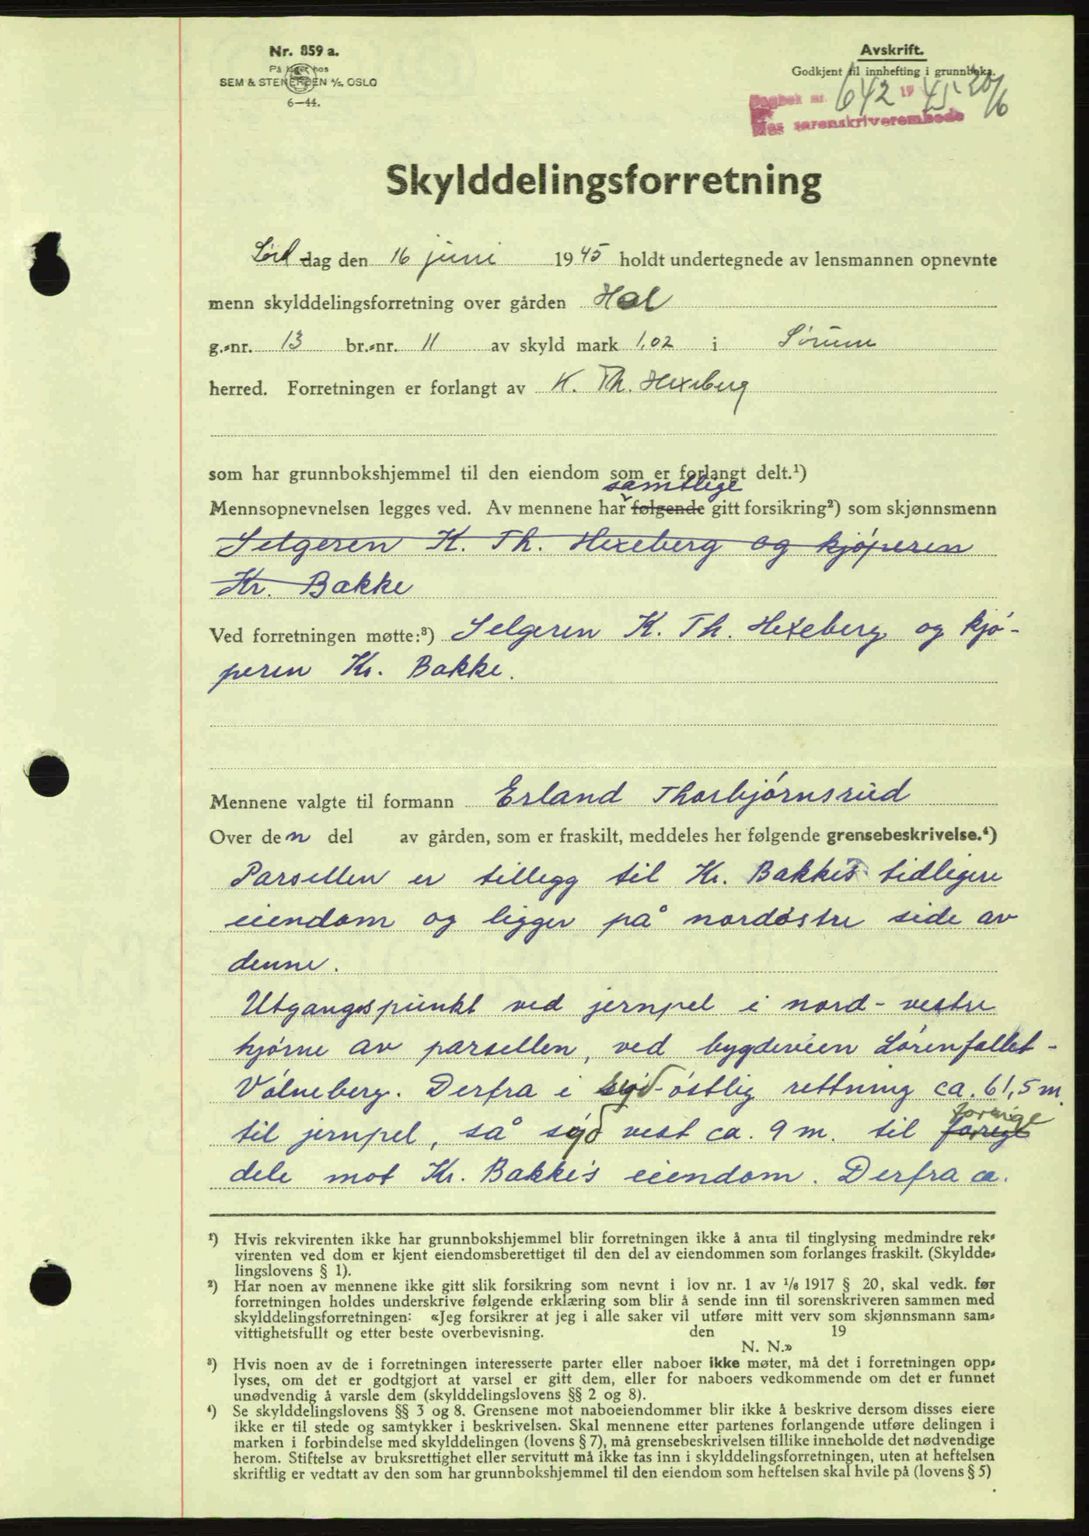 Nr. 859 a.
På lager hos
SEM & STENERSEN A/S, OSLO
6—44.
Avskrift.
Godkjent til innhefting i grunnboka.
Dagbok nr. 642 1945 20/6
Nes sorenskriverembede
Skylddelingsforretning
Lørdag den 16 juni 1945 holdt undertegnede av lensmannen opnevnte
menn skylddelingsforretning over gården Hol
g.-nr. 13 br.-nr. 11 av skyld mark 1,02 i Sørum
herred. Forretningen er forlangt av K. Th. Hexeberg
som har grunnbokshjemmel til den eiendom som er forlangt delt.¹)
samtlige
Mennsopnevnelsen legges ved. Av mennene har følgende gitt forsikring²) som skjønnsmenn
Selgeren K. Th. Hexeberg og kjøperen
Kr. Bakke
Ved forretningen møtte:³) Selgeren K. Th. Hexeberg og kjø-
peren Kr. Bakke.
Mennene valgte til formann Erland Thorbjørnsrud
Over den del av gården, som er fraskilt, meddeles her følgende grensebeskrivelse.⁴)
Parsellen er tillegg til Kr. Bakkes tidligere
eiendom og ligger på nordøstre side av
denne.
Utgangspunkt ved jernpel i nord-vestre
hjørne av parsellen, ved bygdeveien Lørenfallet-
Vølneberg. Derfra i syd-østlig rettning ca. 61,5 m.
forrige
til jernpel, så syd vest ca. 9 m. til forrige
dele mot Kr. Bakke's eiendom. Derfra ca.
¹) Hvis rekvirenten ikke har grunnbokshjemmel blir forretningen ikke å anta til tinglysing medmindre rek-
virenten ved dom er kjent eiendomsberettiget til den del av eiendommen som forlanges fraskilt. (Skyldde-
lingslovens § 1).
²) Har noen av mennene ikke gitt slik forsikring som nevnt i lov nr. 1 av 1/6 1917 § 20, skal vedk. før
forretningen holdes underskrive følgende erklæring som blir å sende inn til sorenskriveren sammen med
skylddelingsforretningen: «Jeg forsikrer at jeg i alle saker vil utføre mitt verv som skjønnsmann sam-
vittighetsfullt og etter beste overbevisning. den 19
N. N.»
³) Hvis noen av de i forretningen interesserte parter eller naboer ikke møter, må det i forretningen opp-
lyses, om det er godtgjort at varsel er gitt dem, eller for naboers vedkommende om det er funnet
unødvendig å varsle dem (skylddelingslovens §§ 2 og 8).
⁴) Se skylddelingslovens §§ 3 og 8. Grensene mot naboeiendommer blir ikke å beskrive dersom disses eiere
ikke er til stede og samtykker i beskrivelsen. Skal mennene etter partenes forlangende utføre delingen i
marken i forbindelse med skylddelingen (lovens § 7), må grensebeskrivelsen tillike inneholde det nødvendige
herom. Stiftelse av bruksrettighet eller servitutt må ikke tas inn i skylddelingsforretningen, uten at heftelsen
skriftlig er vedtatt av den som har grunnbokshjemmel til den eiendom som heftelsen skal hvile på (lovens § 5)